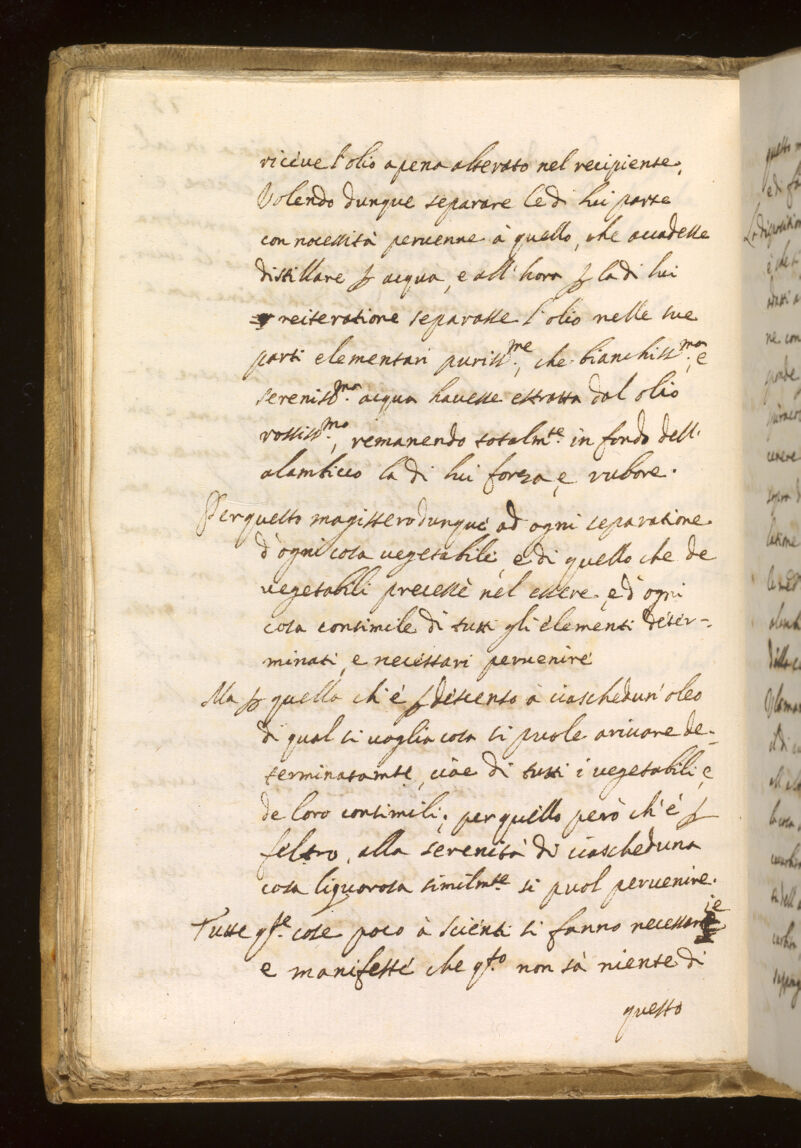 riceve l'olio apena alterato nel recipiente,
Volendo dunque separare le di lui parte
con nocessità pervenne à quello, che accadesse
distillare p acqua, e all'hora p la di lui
reiteratione separasse l'olio nelle sue
parti elementari puriss.me, che bianchiss.ma, e
sereniss.ma acqua havesse estratta dal olio
rossiss.mo, remanendo totalm.te in fondo dell'
alambicco la di lui forza, e rubore.
Per questo magissero dunque ad ogni separatione
d'ogni cosa vegetabile, e di quello che de
vegetabili precesse nel essere, e d'ogni
cosa consimile di tutti gli elementi deter=
minati, e necessari pervenire
Ma p quello ch'è p descenso à ciaschedun' oleo
di qual si voglia cosa si puole arivare de=
terminatam.te, cioè di tutti i vegetabili, e
de loro consimili; per quello però ch'è p
feltro, alla serenità di ciascheduna
cosa liquorosa similm.te si puol pervenire.
Tutte q.ste cose poco à scienti si fanno necessarie
e manifeste che q.sto non sà niente di
questo